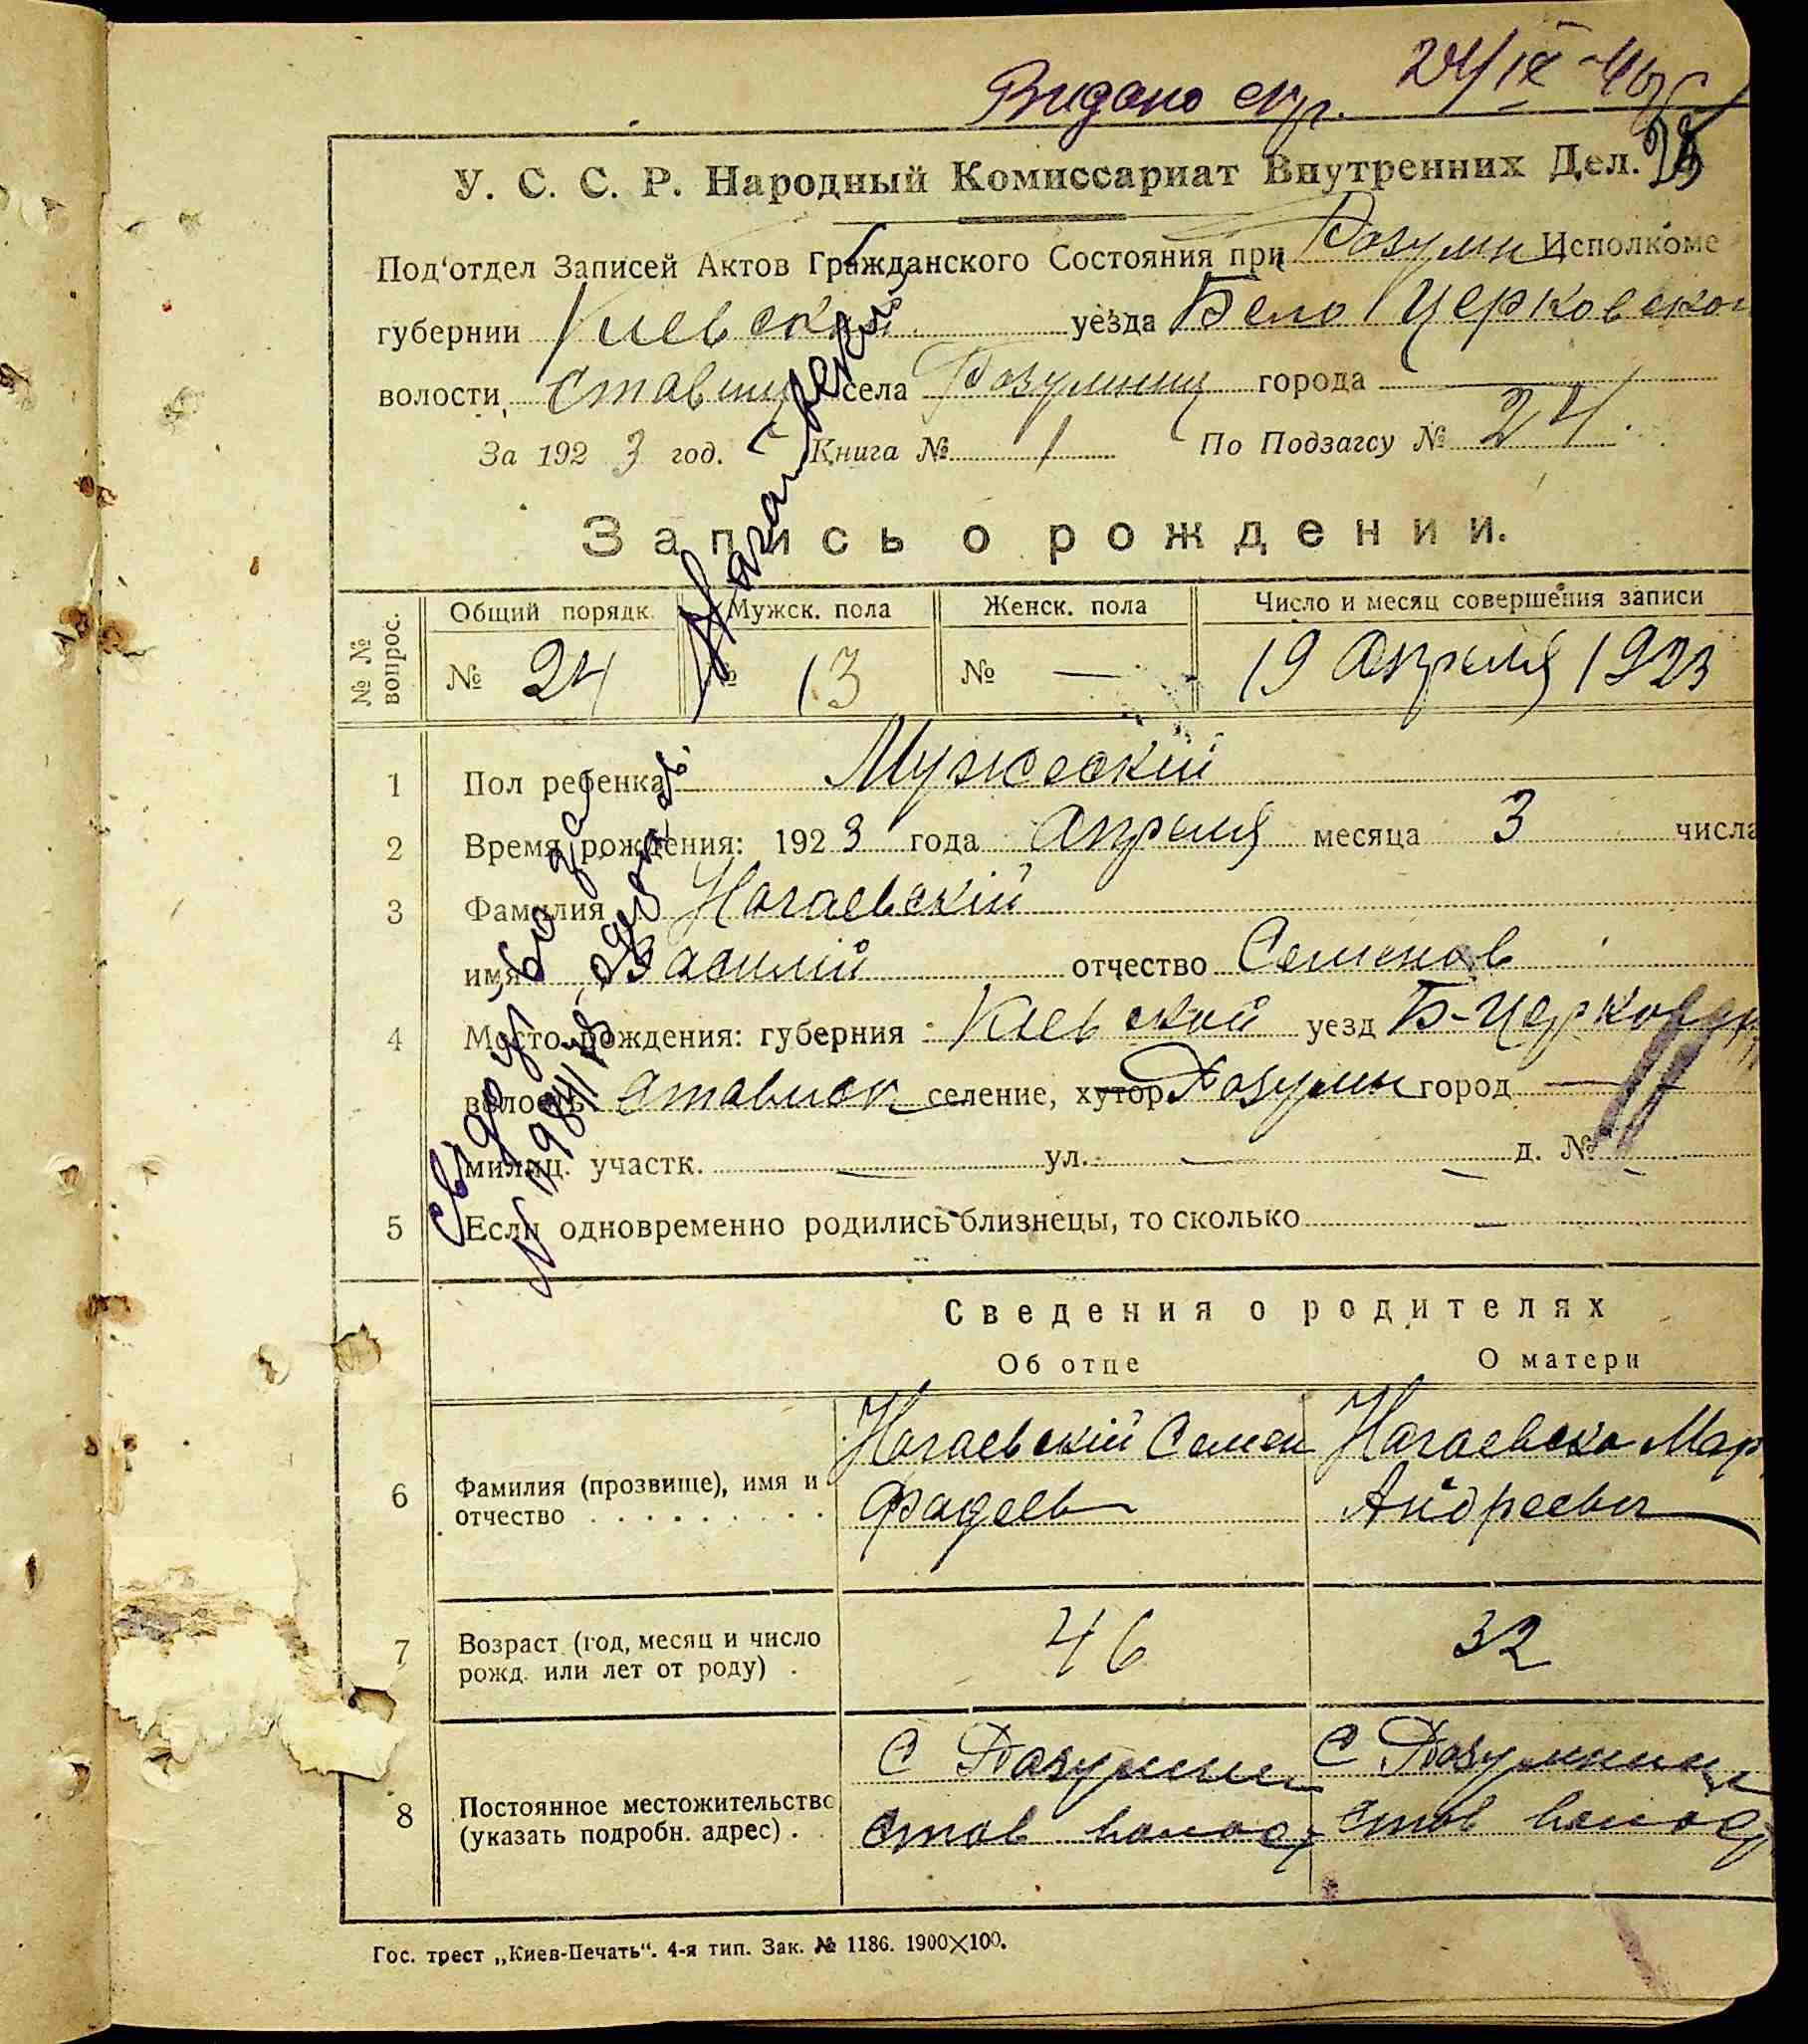 Видано 24/IX
У. С. С. Р. Народный Комиссариат Внутренних Дел.
Под‘отдел Записей Актов Гражданского Состояния при Розумн Исполкоме
губернии Киевской уезда Бело Церковской
волости села Розумниц города —
За 1923 год. Книга № 1 По Подзагсу № 24.
Запись о рождении.
№ № вопрос. Общий порядк. Мужск. пола Женск. пола Число и месяц совершения записи
№ 24 № 13 № — 19 Апреля 1923
1 Пол ребенка Мужеский
2 Время рождения: 1923 года Апреля месяца 3 числа
3 Фамилия Нагаевскій
имя Василій отчество Семенов
4 Место рождения: губерния Киевской уезд Б-Церковск
волость Стависк селение, хутор Розумн город —
милиц. участк. — ул. — д. № —
5 Если одновременно родились близнецы, то сколько —
Сведения о родителях
Об отце О матери
6 Фамилия (прозвище), имя и отчество Нагаевскій Семен Фадеев Нагаевска Мар Андреевн
7 Возраст (год, месяц и число рожд. или лет от роду) . 46 32
8 Постоянное местожительство (указать подробн. адрес) . С Розумниц Став волос С Розумниц Став волос
Гос. трест „Киев-Печать“. 4-я тип. Зак. № 1186. 1900×100.